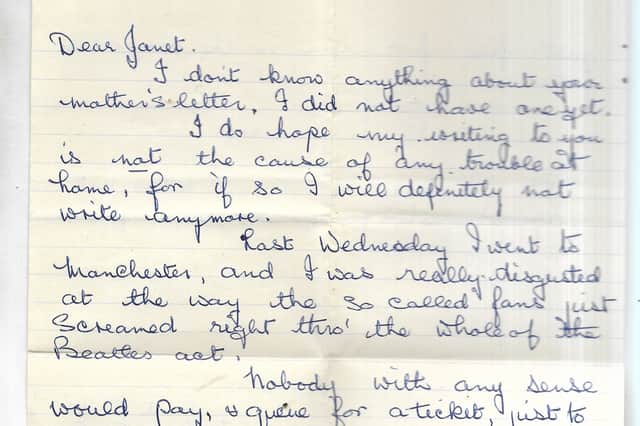 Dear Janet.
I don't know anything about your
mother's letter, I did not have one yet.
I do hope my writing to you
is not the cause of any trouble at
home, for if so I will definitely not
write anymore.
Last Wednesday I went to
Manchester, and I was really disgusted
at the way the so called fans just
Screamed right thro' the whole of the
Beatles act.
Nobody with any sense
would pay, & queue for a ticket, just to